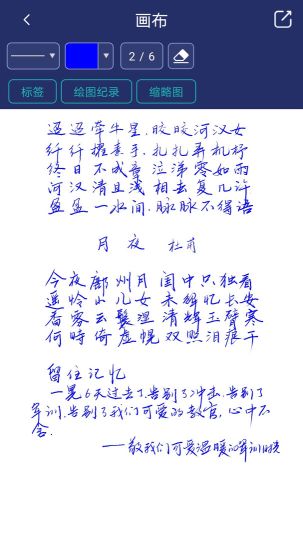 画布
2 / 6
标签 绘图纪录 缩略图
迢迢牵牛星,皎皎河汉女
纤纤擢素手,扎扎弄机杼
终日不成章 泣涕零如雨
河汉清且浅 相去复几许
盈盈一水间,脉脉不得语
月夜 杜甫
今夜鄜州月 闺中只独看
遥怜小儿女 未解忆长安
香雾云鬓湿 清辉玉臂寒
何時倚虚幌 双照泪痕干
留住记忆
一晃6天过去了,告别了冲击,告别了
军训,告别了我们可爱的教官,心中不
舍.
——敬我们可爱温暖的军训时光